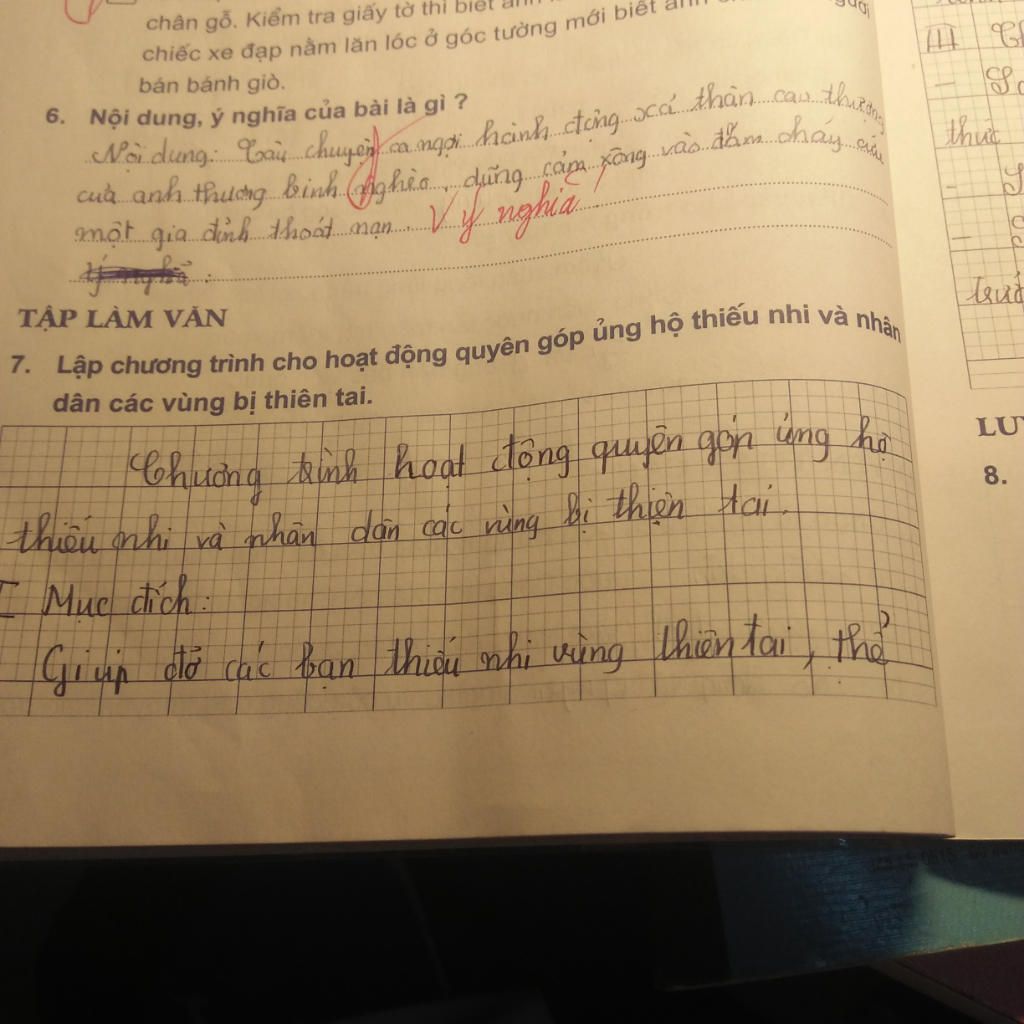 chân gỗ. Kiểm tra giấy tờ thì biết anh
chiếc xe đạp nằm lăn lóc ở góc tường mới biết anh
bán bánh giò.
6. Nội dung, ý nghĩa của bài là gì ?
Nội dung: Câu chuyện ca ngợi hành động xả thân cao thượng
của anh thương binh nghèo, dũng cảm xông vào đám cháy cứu
một gia đình thoát nạn. V ý nghĩa
Ý nghĩa :
TẬP LÀM VĂN
7. Lập chương trình cho hoạt động quyên góp ủng hộ thiếu nhi và nhân
dân các vùng bị thiên tai.
Chương trình hoạt động quyên góp ủng hộ
thiếu nhi và nhân dân các vùng bị thiên tai.
I Mục đích:
Giúp đỡ các bạn thiếu nhi vùng thiên tai, thể
III
thức
LUY
8.